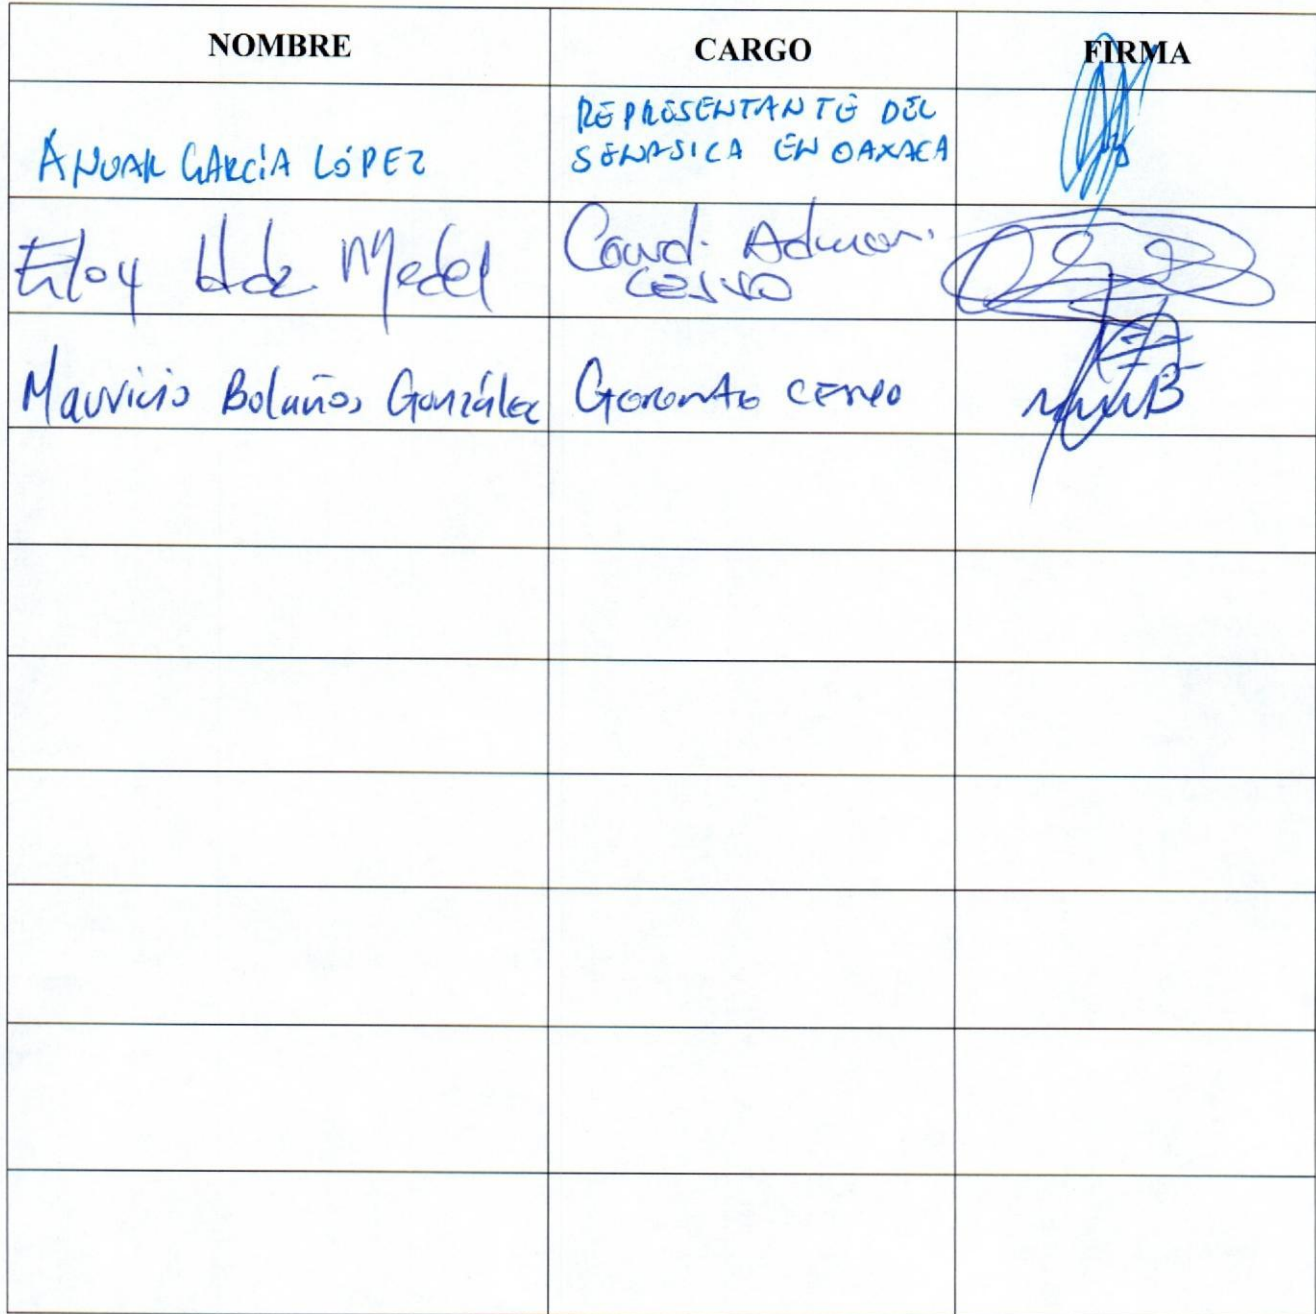 NOMBRE CARGO FIRMA
ANUAR GARCÍA LÓPEZ
REPRESENTANTE DEL
SENASICA EN OAXACA
Eloy Hdz. Medel
Coord. Admon.
CESVO
Mauricio Bolaños González Gerente CESVO